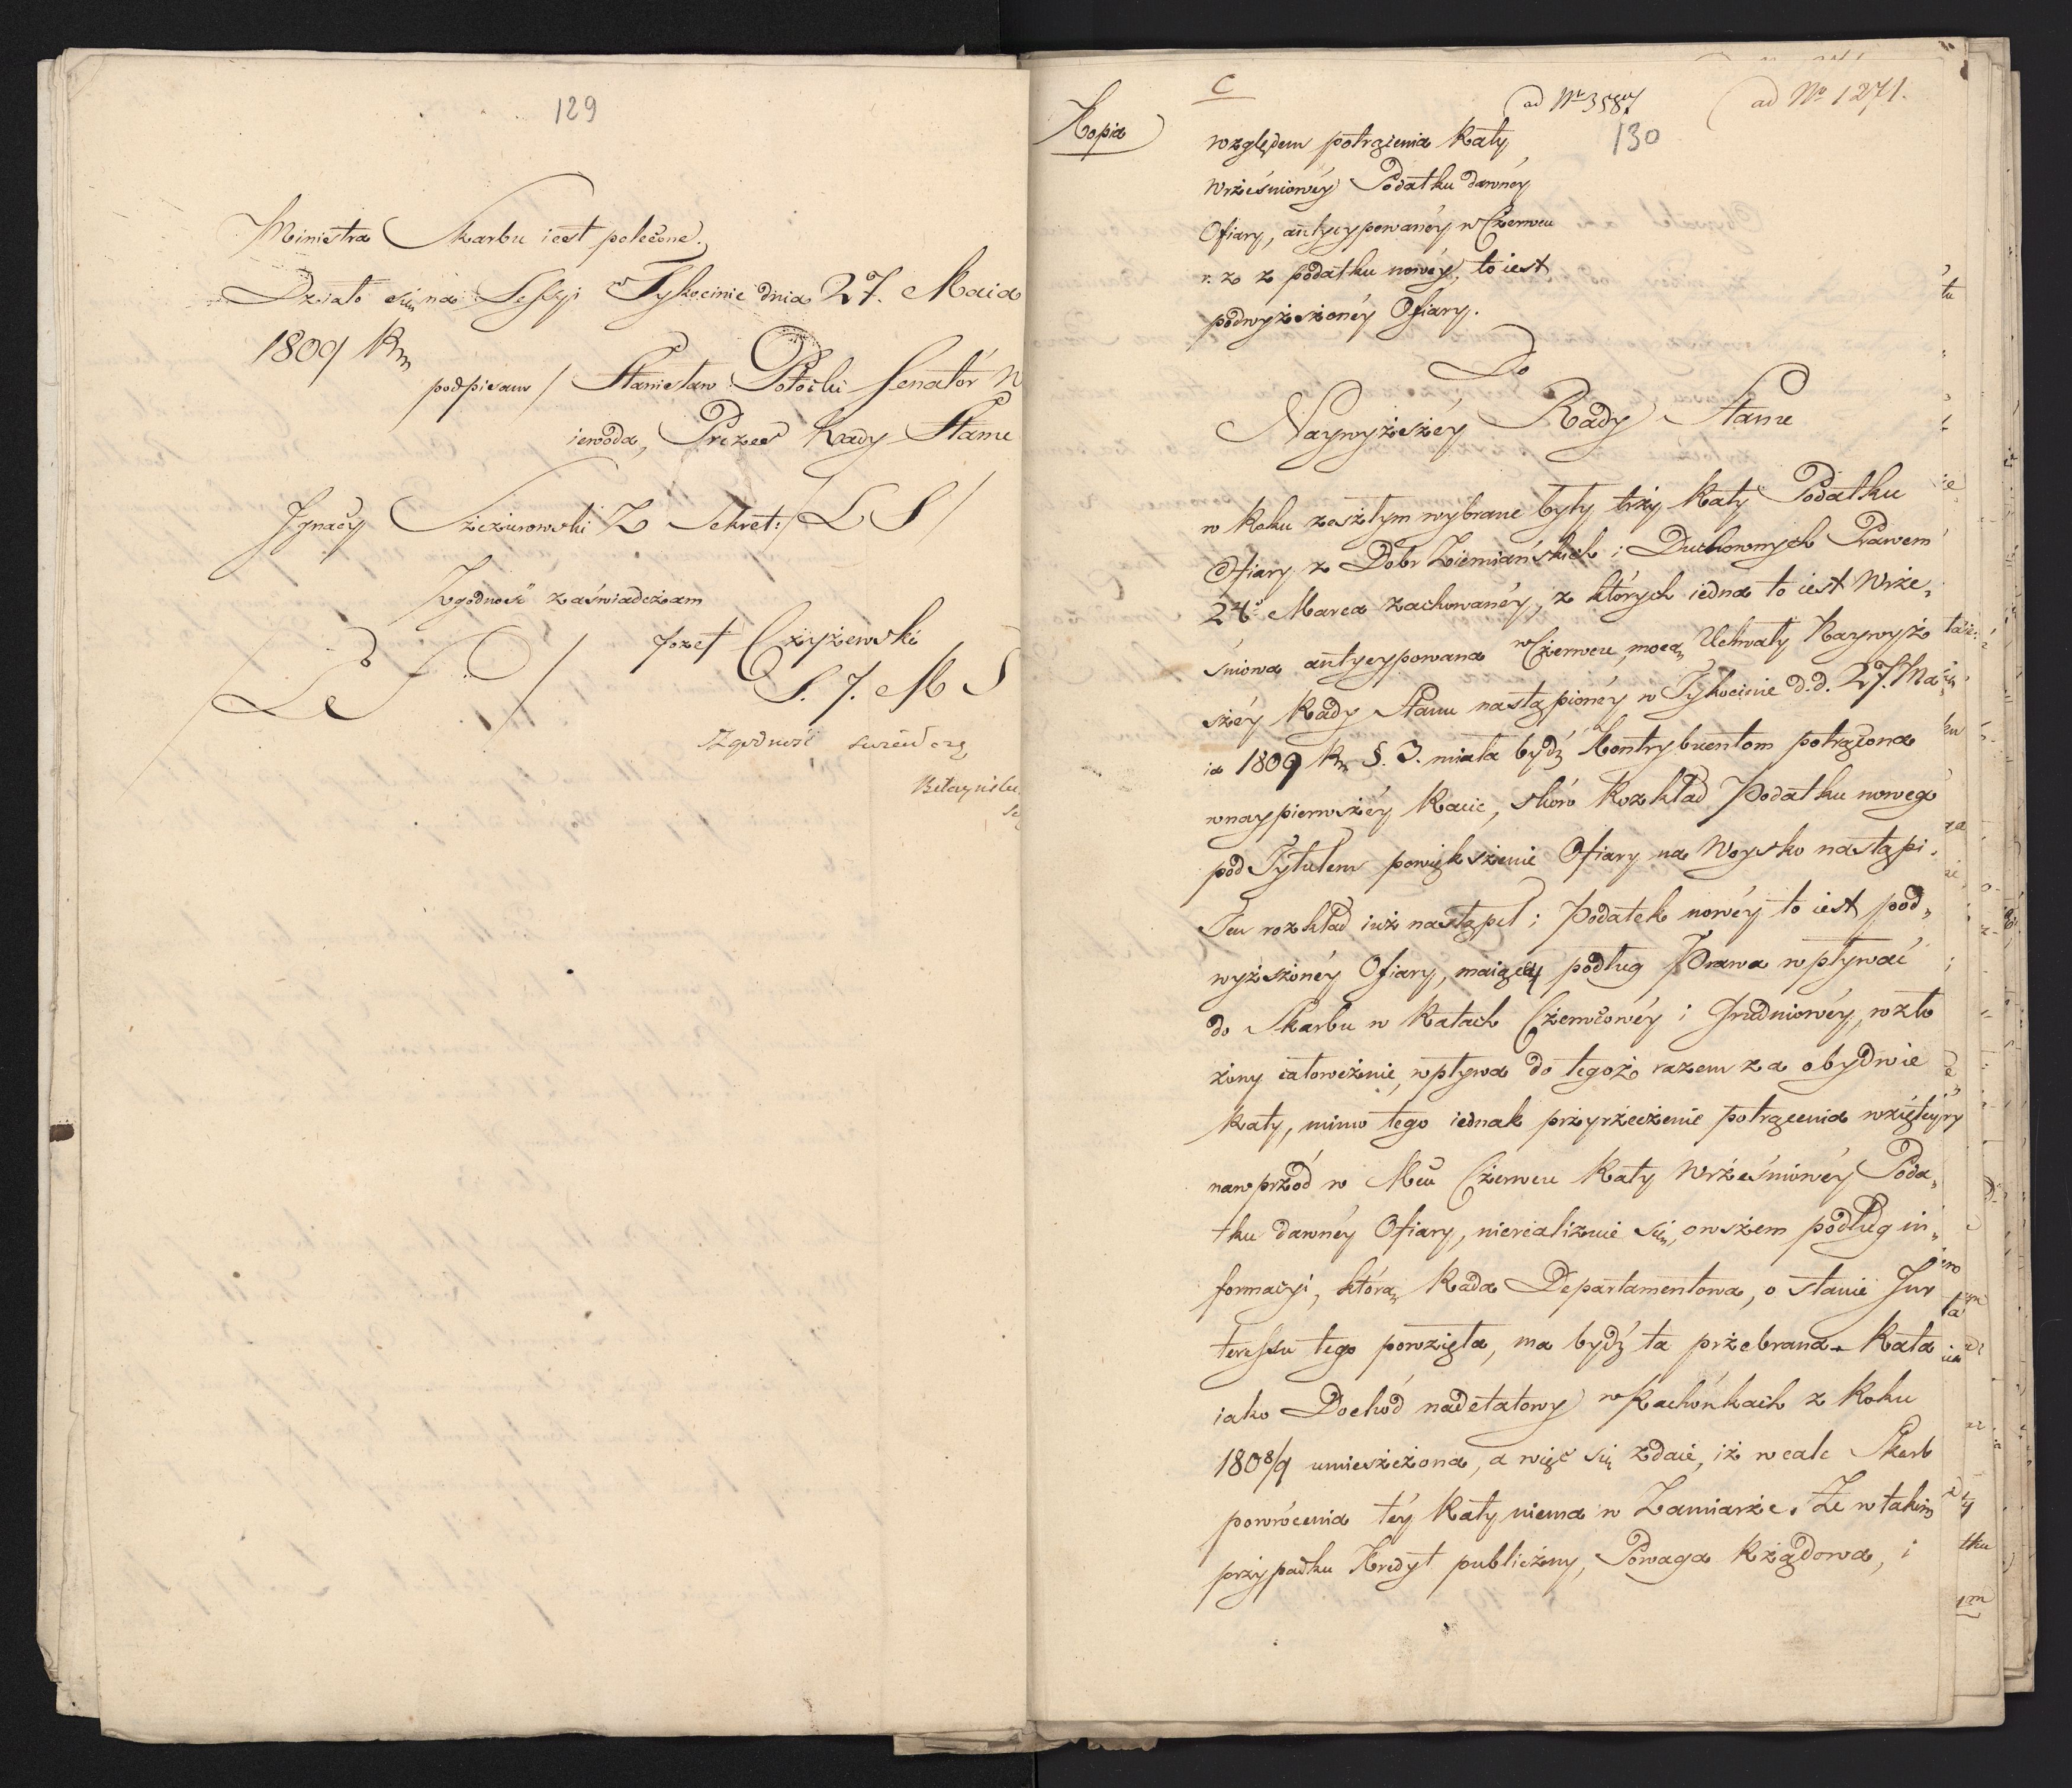 129
Ministra Skarbu iest polecone.
Działo się na Sessyi w Tykocinie dnia 27. Maia
1809 Rn
podpisano / Stanisław Potocki Senator W
iewoda, Prezes Rady Stanu
Ignacy Z Sekret: / L S /
Zgodność zaświadczam
Jozef Czyżewski
S. J. M S
Zgodność

Kopia
C
ad Nr 3587
ad No 1271.
130
względem potrącenia Raty
Wrześniowéy Podatku dawnéy
Ofiary, antycypowanéy w Czerwcu
r. z. z podatku nowéy, to iest
podwyższonéy Ofiary.
Do
Naywyższéy Rady Stanu
w Roku zeszłym wybrane były trzy Raty Podatku
Ofiary z Dobr Ziemiańskich i Duchownych Prawem
24o Marca zachowanéy, z których iedna to iest Wrze„
śniowa antycypowana w Czerwcu, mocą Uchwały Naywyż
széy Rady Stanu nastąpionéy w Tykocinie d. d. 27. Ma
ia 1809 Rn §. 3. miała bydź Kontrybuentom potrącona
w naypierwszéy Racie, skoro Rozkład Podatku nowego
pod Tytułem powiększenie Ofiary na Woysko nastąpi.
Ten rozkład iuż nastąpił; Podatek nowéy to iest pod„
wyższonéy Ofiary, maiący podług Prawa wpływać
do Skarbu w Ratach Czerwcowéy i Grudniowéy, rozło
żony całowcznie, wpływa do tegoż razem za obydwie
Raty, mimo tego iednak przyrzeczenie potrącenia wziętéy
naprzód w Mcu Czerwcu Raty Wrześniowéy Poda„
tku dawnéy Ofiary, nierealizuie się, owszem podług in„
formacyi, którą Rada Departamentowa, o stanie In
teressu tego powzięła, ma bydź ta przebrana Rata
iako Dochód nadetatowy w Rachunkach z Roku
1808/9 umieszczona, a więc się zdaie, iż wcale Skarb
powrócenia téy Raty niema w Zamiarze. Że w takim
przypadku Kredyt publiczny, Powaga Rządowa, i